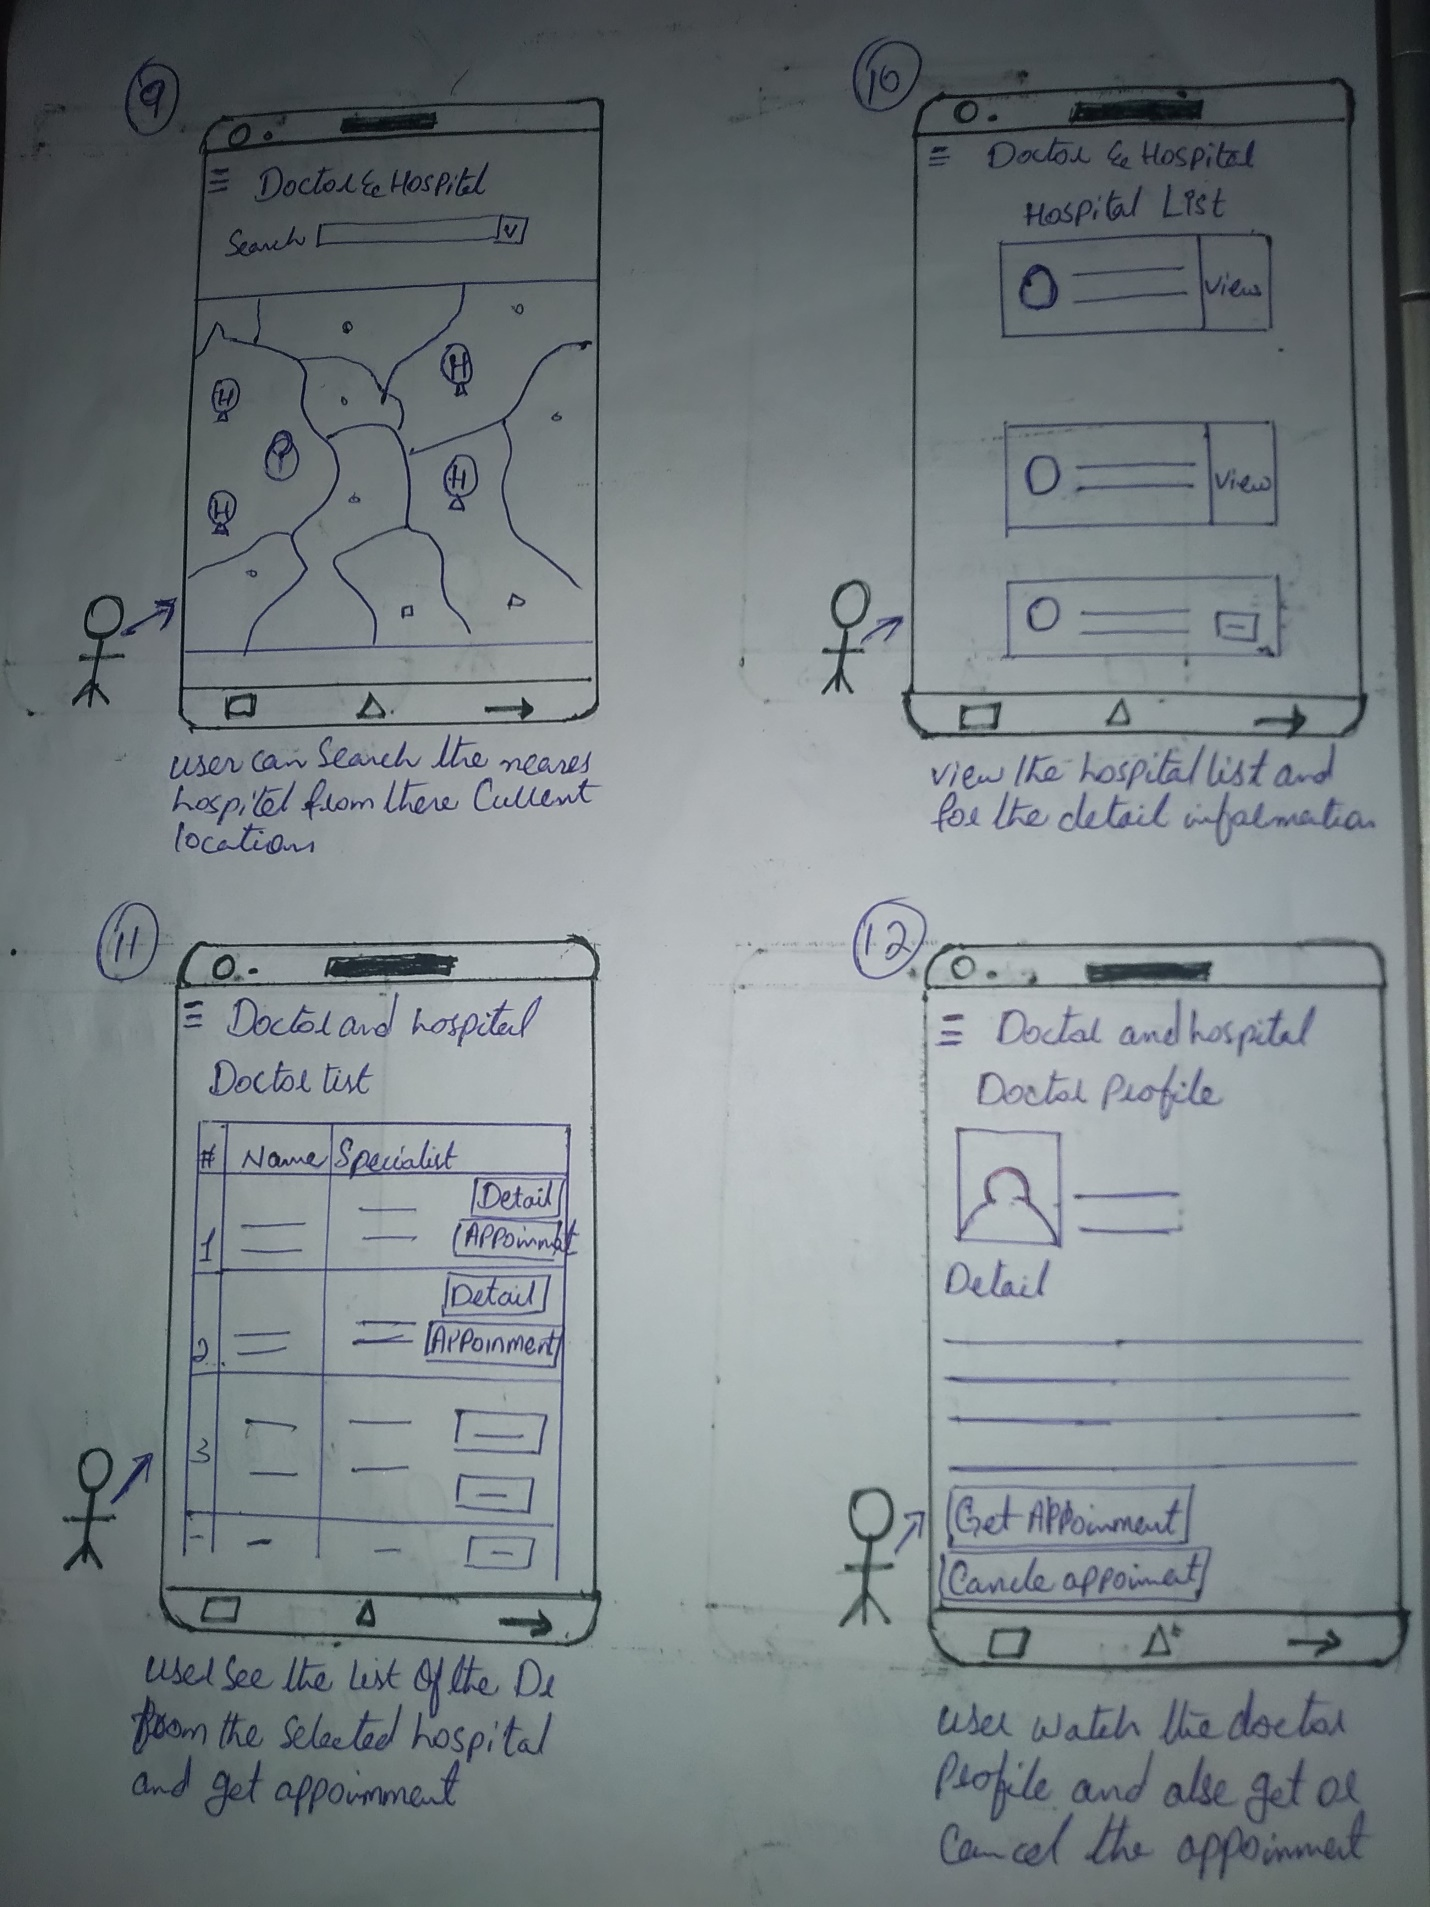 9
Doctor & Hospital
Search
H
H
H
H
user can Search the neares
hospital from there Current
locations
10
Doctor & Hospital
Hospital List
View
View
view the hospital list and
for the detail information
11
Doctor and hospital
Doctor List
# Name Specialist
1
Detail
Appoinmet
2
Detail
Appoinment
3
User see the list of the Dr
from the selected hospital
and get appoinmment
12
Doctor and hospital
Doctor Profile
Detail
Get Appoinment
Cancle appoiment
user watch the doctor
Profile and also get or
Cancel the appoinment